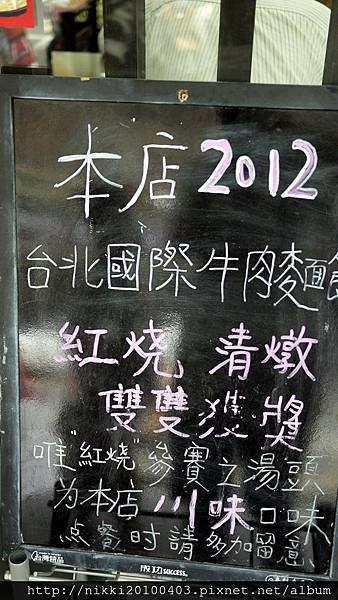 本店2012
台北國際牛肉麵館
紅燒,清燉
雙雙獲獎
唯"紅燒"參賽之湯頭
為本店川味口味
点餐时請多加留意
台灣精品
成功 success.
http://nikki20100403.pixnet.net/album